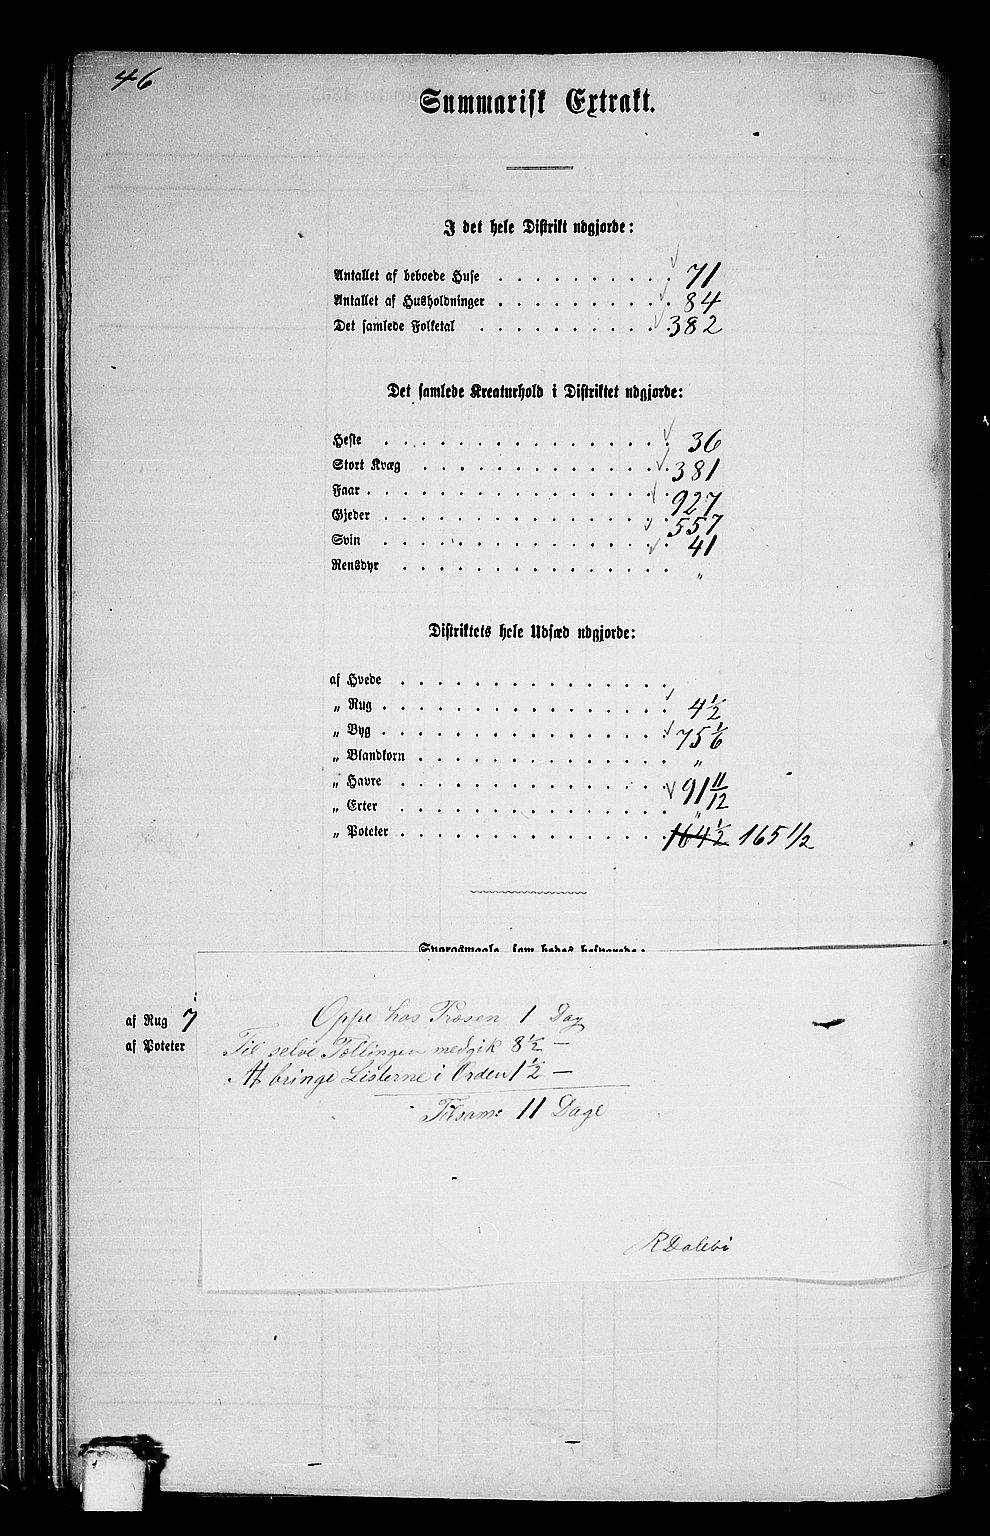 46
Summarisk Extrakt.
I det hele Distrikt udgjorde:
Antallet af beboede Huse . . . . . . . . . . 71
Antallet af Husholdninger . . . . . . . . . . 84
Det samlede Folketal . . . . . . . . . . . 382
Det samlede Kreaturhold i Distriktet udgjorde:
Heste . . . . . . . . . . . . . . . . 36
Stort Kvæg . . . . . . . . . . . . . . 381
Faar . . . . . . . . . . . . . . . . . 927
Gjeder . . . . . . . . . . . . . . . . 557
Svin . . . . . . . . . . . . . . . . 41
Rensdyr . . . . . . . . . . . . . . . "
Distriktets hele Udsæd udgjorde:
af Hvede . . . . . . . . . . . . . . .
„ Rug . . . . . . . . . . . . . . . . 4 1/2
„ Byg . . . . . . . . . . . . . . . . 75 1/6
„ Blandkorn . . . . . . . . . . . . . . "
„ Havre . . . . . . . . . . . . . . . 91 11/12
„ Erter . . . . . . . . . . . . . . . "
„ Poteter . . . . . . . . . . . . . . . 164 1/2 165 1/2
Spørgsmaale, som bedes besvarede:
Oppe hos Prosen 1 Dag
af Rug 7
Til selve Tællingen medgik 8 1/2 —
af Poteter
At bringe Listerne i Orden 1 1/2 —
Tilsam: 11 Dage
R Dalebi